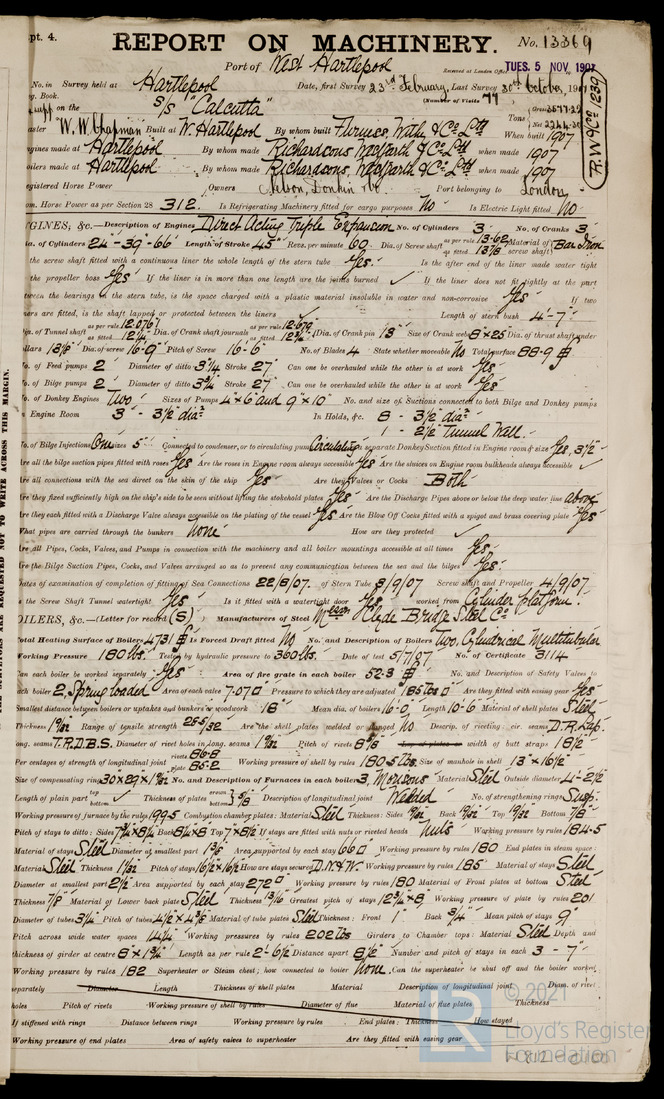 Rpt. 4.
REPORT ON MACHINERY. No. 13369
Port of West Hartlepool
Received at London Office TUES. 5 NOV. 1907
No. in Survey held at Hartlepool Date, first Survey 23rd February, Last Survey 30th October, 1907
Book. (Number of Visits 77
on the S/S "Calcutta" Tons Gross 3577.29 Net
Master W. W. Chapman Built at W. Hartlepool By whom built Furness, Withy & Co. Ltd When built 1907
Engines made at Hartlepool By whom made Richardsons, Westgarth & Co. Ltd when made 1907
Boilers made at Hartlepool By whom made Richardsons, Westgarth & Co. Ltd when made 1907
Registered Horse Power Owners Nelson, Donkin & Co. Port belonging to London
Nom. Horse Power as per Section 28 312. Is Refrigerating Machinery fitted for cargo purposes No Is Electric Light fitted No
R.W & Co 1239
ENGINES, &c.—Description of Engines Direct Acting Triple Expansion No. of Cylinders 3 No. of Cranks 3
Dia. of Cylinders 24-39-66 Length of Stroke 45" Revs. per minute 60 Dia. of Screw shaft as per rule 13.62 as fitted 13 7/8 Material of screw shaft Bar Iron
Is the screw shaft fitted with a continuous liner the whole length of the stern tube Yes. Is the after end of the liner made water tight
in the propeller boss Yes If the liner is in more than one length are the joints burned ✓ If the liner does not fit tightly at the part
between the bearings in the stern tube, is the space charged with a plastic material insoluble in water and non-corrosive Yes If two
liners are fitted, is the shaft lapped or protected between the liners ✓ Length of stern bush 4'-7"
Dia. of Tunnel shaft as per rule 12.076 as fitted 12 1/4 Dia. of Crank shaft journals as per rule 12.679 as fitted 12 3/4 Dia. of Crank pin 13" Size of Crank webs 8 x 25 Dia. of thrust shaft under
collars 13 1/8 Dia. of screw 16-9" Pitch of Screw 16-6 No. of Blades 4 State whether moveable No Total surface 88.9
No. of Feed pumps 2 Diameter of ditto 3 1/4 Stroke 27" Can one be overhauled while the other is at work Yes
No. of Bilge pumps 2 Diameter of ditto 3 3/4 Stroke 27" Can one be overhauled while the other is at work Yes
No. of Donkey Engines Two Sizes of Pumps 4" x 6" and 9" x 10" No. and size of Suctions connected to both Bilge and Donkey pumps
In Engine Room 3 - 3 1/2" dia. In Holds, &c. 8 - 3 1/2" dia.
1 - 2 1/2" Tunnel Well.
No. of Bilge Injections One sizes 5" Connected to condenser, or to circulating pump Circulating Is a separate Donkey Suction fitted in Engine room & size Yes, 3 1/2"
Are all the bilge suction pipes fitted with roses Yes Are the roses in Engine room always accessible Yes Are the sluices on Engine room bulkheads always accessible ✓
Are all connections with the sea direct on the skin of the ship Yes Are they Valves or Cocks Both
Are they fixed sufficiently high on the ship's side to be seen without lifting the stokehold plates Yes Are the Discharge Pipes above or below the deep water line above
Are they each fitted with a Discharge Valve always accessible on the plating of the vessel Yes Are the Blow Off Cocks fitted with a spigot and brass covering plate Yes
What pipes are carried through the bunkers None How are they protected ✓
Are all Pipes, Cocks, Valves, and Pumps in connection with the machinery and all boiler mountings accessible at all times Yes.
Are the Bilge Suction Pipes, Cocks, and Valves arranged so as to prevent any communication between the sea and the bilges Yes.
Dates of examination of completion of fitting of Sea Connections 22/8/07. of Stern Tube 3/9/07 Screw shaft and Propeller 4/9/07
Is the Screw Shaft Tunnel watertight Yes Is it fitted with a watertight door Yes worked from Cylinder platform.
BOILERS, &c.—(Letter for record (S)) Manufacturers of Steel Clyde Bridge Steel Co.
Total Heating Surface of Boilers 4731 Is Forced Draft fitted No No. and Description of Boilers Two, Cylindrical Multitubular
Working Pressure 180 lbs. Tested by hydraulic pressure to 360 lbs. Date of test 5/7/07 No. of Certificate 3114
Can each boiler be worked separately Yes Area of fire grate in each boiler 52.3 No. and Description of Safety Valves to
each boiler 2, Spring loaded Area of each valve 7.07 Pressure to which they are adjusted 185 lbs Are they fitted with easing gear Yes
Smallest distance between boilers or uptakes and bunkers or woodwork 18" Mean dia. of boilers 16-0 Length 10-6 Material of shell plates Steel
Thickness 1 9/32 Range of tensile strength 28.5/32 Are the shell plates welded or flanged No Descrip. of riveting: cir. seams D.R. Lap.
long. seams T.R.D.B.S. Diameter of rivet holes in long. seams 1 9/32 Pitch of rivets 8 7/8 width of butt straps 18 1/2
Per centages of strength of longitudinal joint rivets 86.8 plate 85.2 Working pressure of shell by rules 180.5 lbs. Size of manhole in shell 13" x 16 1/2
Size of compensating ring 30 x 29 x 1 9/32 No. and Description of Furnaces in each boiler 3, Morisons Material Steel Outside diameter 4-2 1/2
Length of plain part top bottom ✓ Thickness of plates crown bottom 5/8 Description of longitudinal joint Welded No. of strengthening rings Susp.
Working pressure of furnace by the rules 199.5 Combustion chamber plates: Material Steel Thickness: Sides 19/32 Back 19/32 Top 19/32 Bottom 7/8
Pitch of stays to ditto: Sides 7 3/4 x 8 1/4 Back 8 1/4 x 8 Top 7 x 8 1/2 If stays are fitted with nuts or riveted heads Nuts Working pressure by rules 184.5
Material of stays Steel Diameter at smallest part 1 3/8 Area supported by each stay 66 Working pressure by rules 180 End plates in steam space:
Material Steel Thickness 1 1/32 Pitch of stays 16 1/2 x 16 1/2 How are stays secured D.N. & W. Working pressure by rules 185 Material of stays Steel
Diameter at smallest part 2 1/2 Area supported by each stay 272 Working pressure by rules 180 Material of Front plates at bottom Steel
Thickness 7/8 Material of Lower back plate Steel Thickness 13/16 Greatest pitch of stays 12 3/4 x 8 Working pressure of plate by rules 201
Diameter of tubes 3 1/4 Pitch of tubes 4 1/2 x 4 3/8 Material of tube plates Steel Thickness: Front 1" Back 3/4" Mean pitch of stays 9"
Pitch across wide water spaces 14 1/4 Working pressures by rules 202 lbs Girders to Chamber tops: Material Steel Depth and
thickness of girder at centre 8" x 1 3/4 Length as per rule 2-6 1/2 Distance apart 8 1/2 Number and pitch of stays in each 3 - 7"
Working pressure by rules 182 Superheater or Steam chest; how connected to boiler None. Can the superheater be shut off and the boiler worked
separately Diameter Length Thickness of shell plates Material Description of longitudinal joint Diam. of rivet
holes Pitch of rivets Working pressure of shell by rules Diameter of flue Material of flue plates Thickness
If stiffened with rings Distance between rings Working pressure by rules End plates: Thickness How stayed
Working pressure of end plates Area of safety valves to superheater Are they fitted with easing gear
© 2021
Lloyd's Register
Foundation